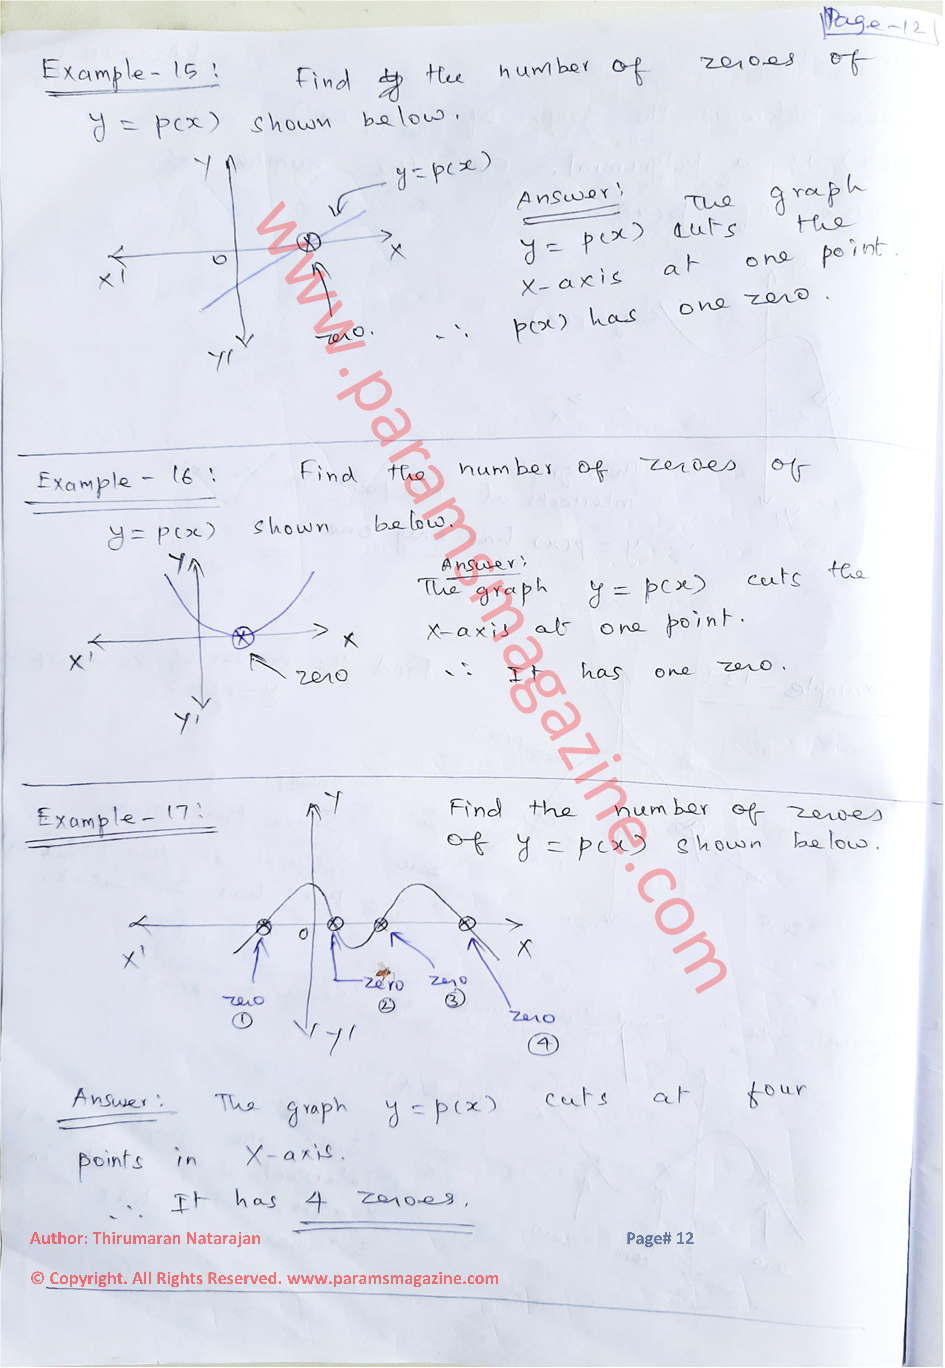 Page-12
Example-15: Find the number of zeroes of
y = p(x) shown below.
Y
y = p(x)
X'
O
X
zero.
Y'
Answer: The graph
y = p(x) cuts the
X-axis at one point.
∴ p(x) has one zero.
Example - 16: Find the number of zeroes of
y = p(x) shown below.
Y
X'
X
zero
Y'
Answer:
The graph y = p(x) cuts the
X-axis at one point.
∴ It has one zero.
Example-17:
Find the number of zeroes
of y = p(x) shown below.
Y
X'
O
X
zero ①
zero ②
zero ③
zero ④
Y'
Answer: The graph y = p(x) cuts at four
points in X-axis.
∴ It has 4 zeroes.
www.paramsmagazine.com
Author: Thirumaran Natarajan
Page# 12
© Copyright. All Rights Reserved. www.paramsmagazine.com